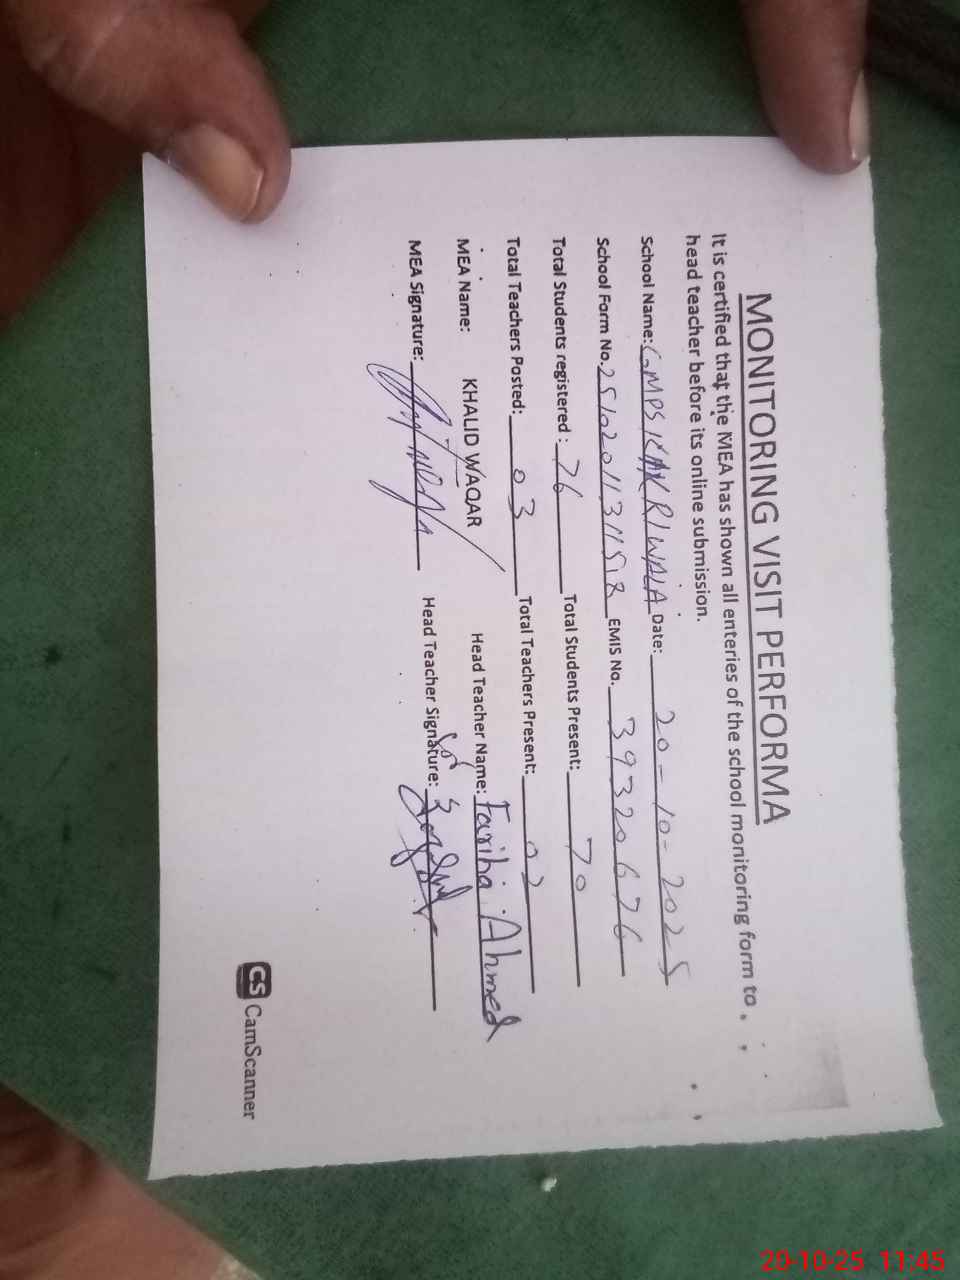 MONITORING VISIT PERFORMA
It is certified that the MEA has shown all enteries of the school monitoring form to
head teacher before its online submission.
School Name: GMPS KAKRIWALA Date: 20-10-2025
School Form No. EMIS No. 39320676
Total Students registered : 76 Total Students Present: 70
Total Teachers Posted: 03 Total Teachers Present: 02
MEA Name: KHALID WAQAR Head Teacher Name: Fariha Ahmed
MEA Signature: Head Teacher Signature:
CS CamScanner
20-10-25 11:45